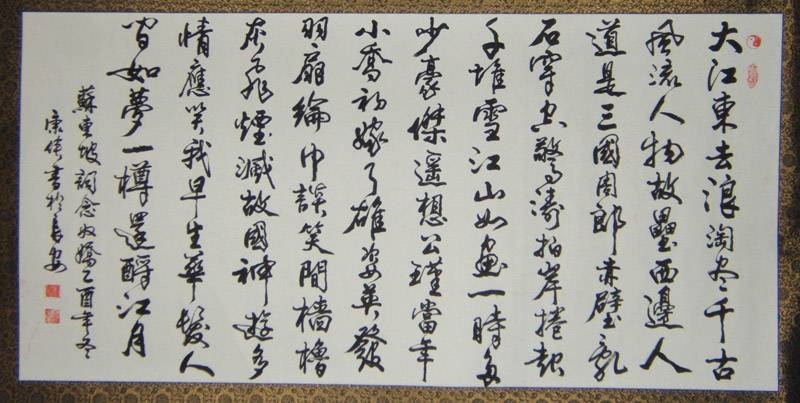 大江東去浪淘尽千古
風流人物故壘西邊人
道是三國周郎赤壁亂
石穿空驚濤拍岸捲起
千堆雪江山如畫一時多
少豪傑遥想公瑾當年
小喬初嫁了雄姿英發
羽扇綸巾談笑間檣櫓
灰飛煙滅故國神遊多
情應笑我早生華髮人
間如夢一樽還酹江月
蘇東坡詞念奴嬌乙酉年冬
康書於長安